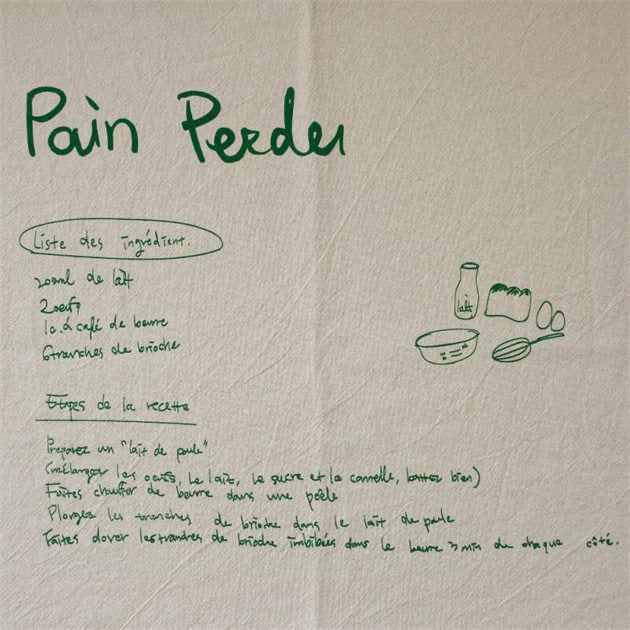 Pain Perdu
Liste des ingrédient.
200ml de lait
2 oeufs
1c.à café de beurre
6 tranches de brioche
lait
Etapes de la recette
Preparez un "lait de poule"
(mélanger les oeufs, Le lait, le sucre et la cannelle, battez bien)
Faites chauffer de beurre dans une poêle
Plongez les tranches de brioche dans le lait de poule
Faites dorer les tranches de brioche imbibées dans le beurre 3 min de chaque côté.